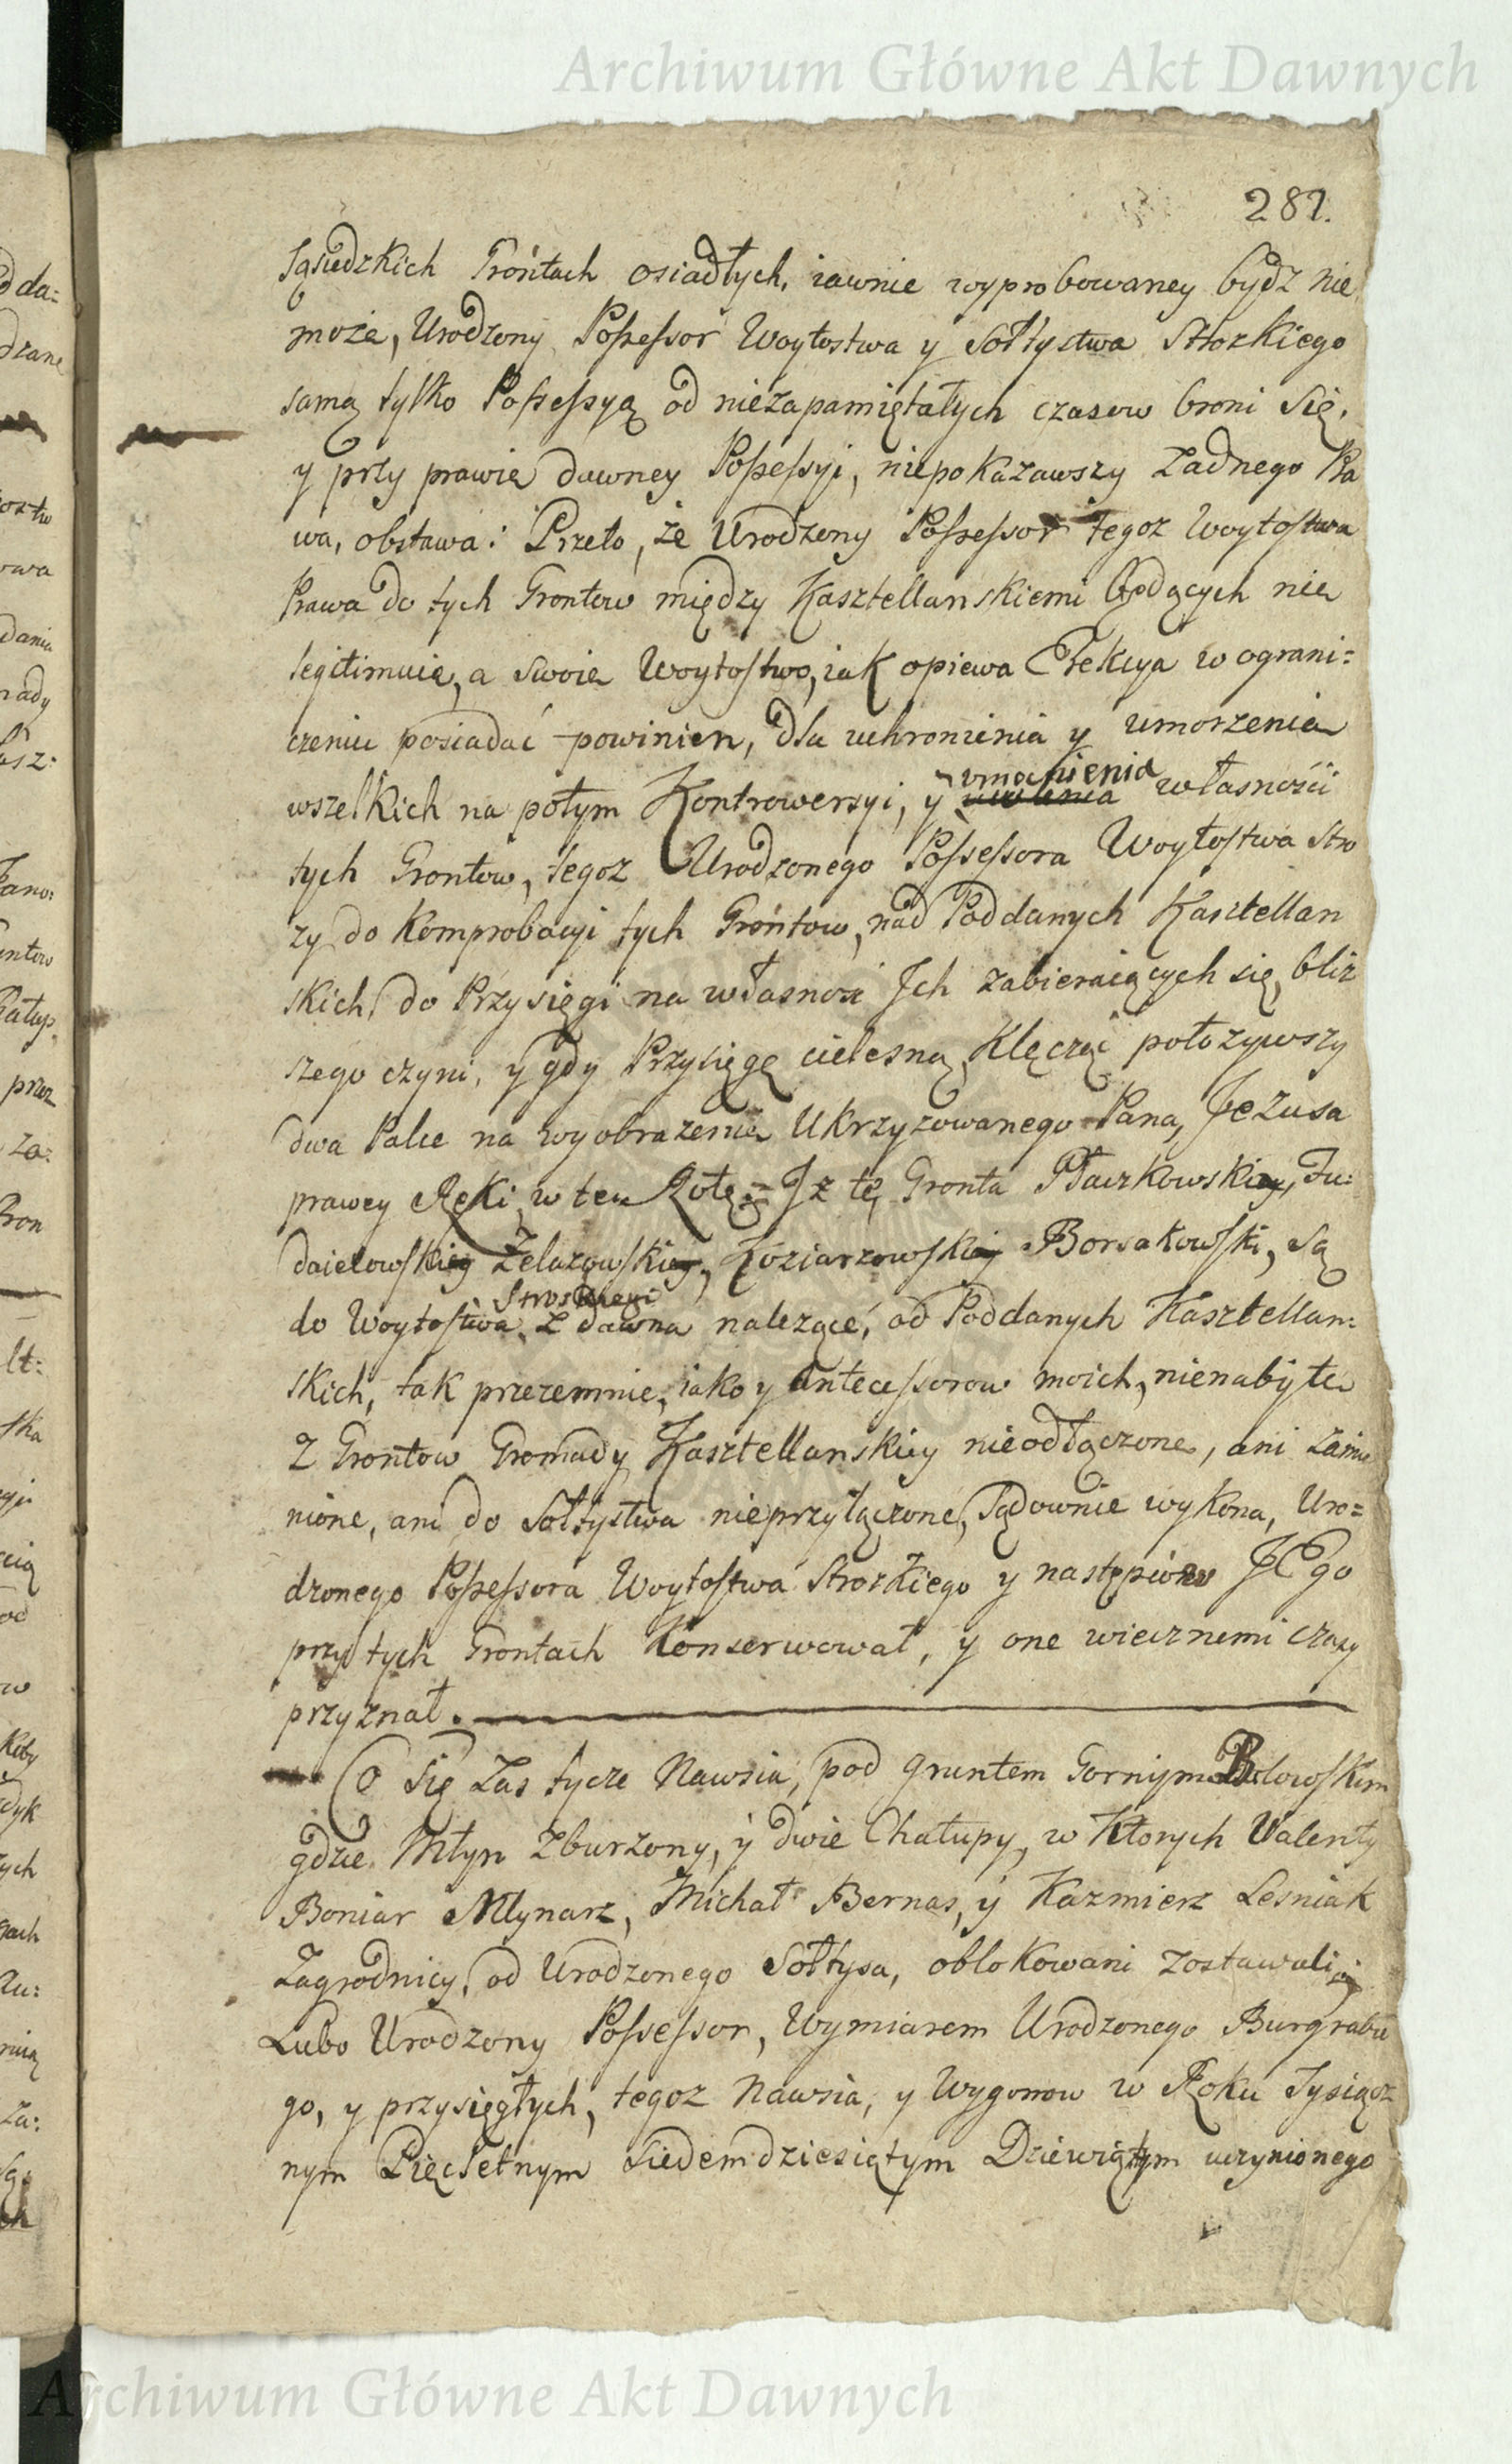 Archiwum Główne Akt Dawnych
281.
sąsiedzkich Grońtach osiadłych, iawnie wyprobowaney bydz nie
może, Urodzony Possessor Woytostwa y Sołtystwa Strozkiego
samą tylko Possessyą od niezapamiętałych czasow broni się,
y przy prawie dawney Possessyi, niepokazawszy zadnego Pra
wa, obstawa: Przeto, że Urodzony Possessor tegoz Woytostwa
Prawa do tych Grontow między Kasztellanskiemi będących nie
legitimuie, a swoie Woytostwo, iak opiewa Erekcya w ograni=
czeniu posiadać powinien, dla uchronienia y umorzenia
wszelkich na potym Kontrowersyi, y umocnienia własności
tych Grontow, tegoz Urodzonego Possessora Woytostwa Stro
zy do Komprobacyi tych Grontow, nad Poddanych Kasztellan
skich, do Przysięgi na własnosc Jch zabieraiących się, bliz
szego czyni, y gdy Przysięgę cielesną, Klęcząc położywszy
dwa Palce na wyobrazenie Ukrzyzowanego Pana, Jezusa
prawey Ręki, w tę Rotę = Jz te Gronta Płaczkowski, Fu=
daielowski Zelazowski, Koziarzowski Borsakowski, są
Stroskiego
do Woytostwa z dawna nalezące, od Poddanych Kasztellan=
skich, tak przezemnie, iako y Antecessorow moich, nienabyte
z Grontow Gromady Kasztellanskiey nieodłączone, ani zamie
nione, ani do Sołtystwa nieprzyłączone, sądownie wykona, Uro=
dzonego Possessora Woytostwa Strozkiego y następcow JEgo
przy tych Grontach Konserwował, y one wiecznemi czasy
przyznał.
Co się zas tycze Nawsia, pod gruntem Gornym
gdzie Młyn zburzony, y dwie Chałupy, w Ktorych Valenty
Boniar Mlynarz, Michał Bernas, y Kazmierz Lesniak
Zagrodnicy, od Urodzonego Sołtysa, oblokowani zostawali,
Lubo Urodzony Possessor, Wymiarem Urodzonego Burgrabie
go, y przysięgłych, tegoz Nawsia, y Wygonow w Roku Tysiącz
nym Pięcsetnym Siedemdziesiątym Dziewiątym uczynionego
Archiwum Główne Akt Dawnych